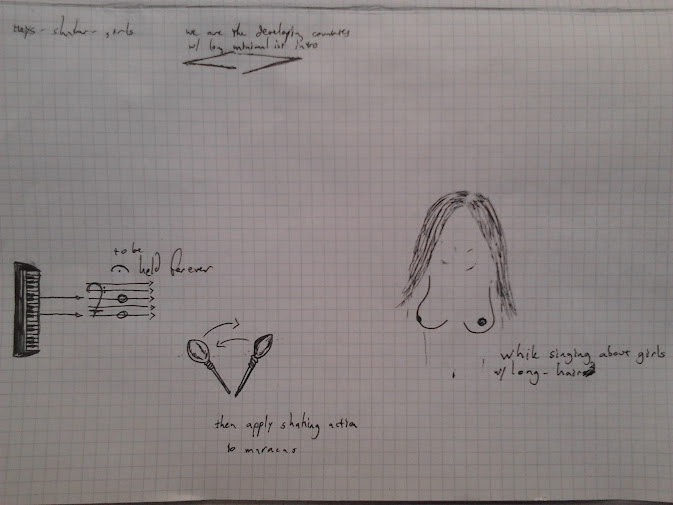 maps - shaker - girls
we are the developing countries
w/ long minimalist intro
to be
held forever
then apply shaking action
to maracas
while singing about girls
w/ long-hair